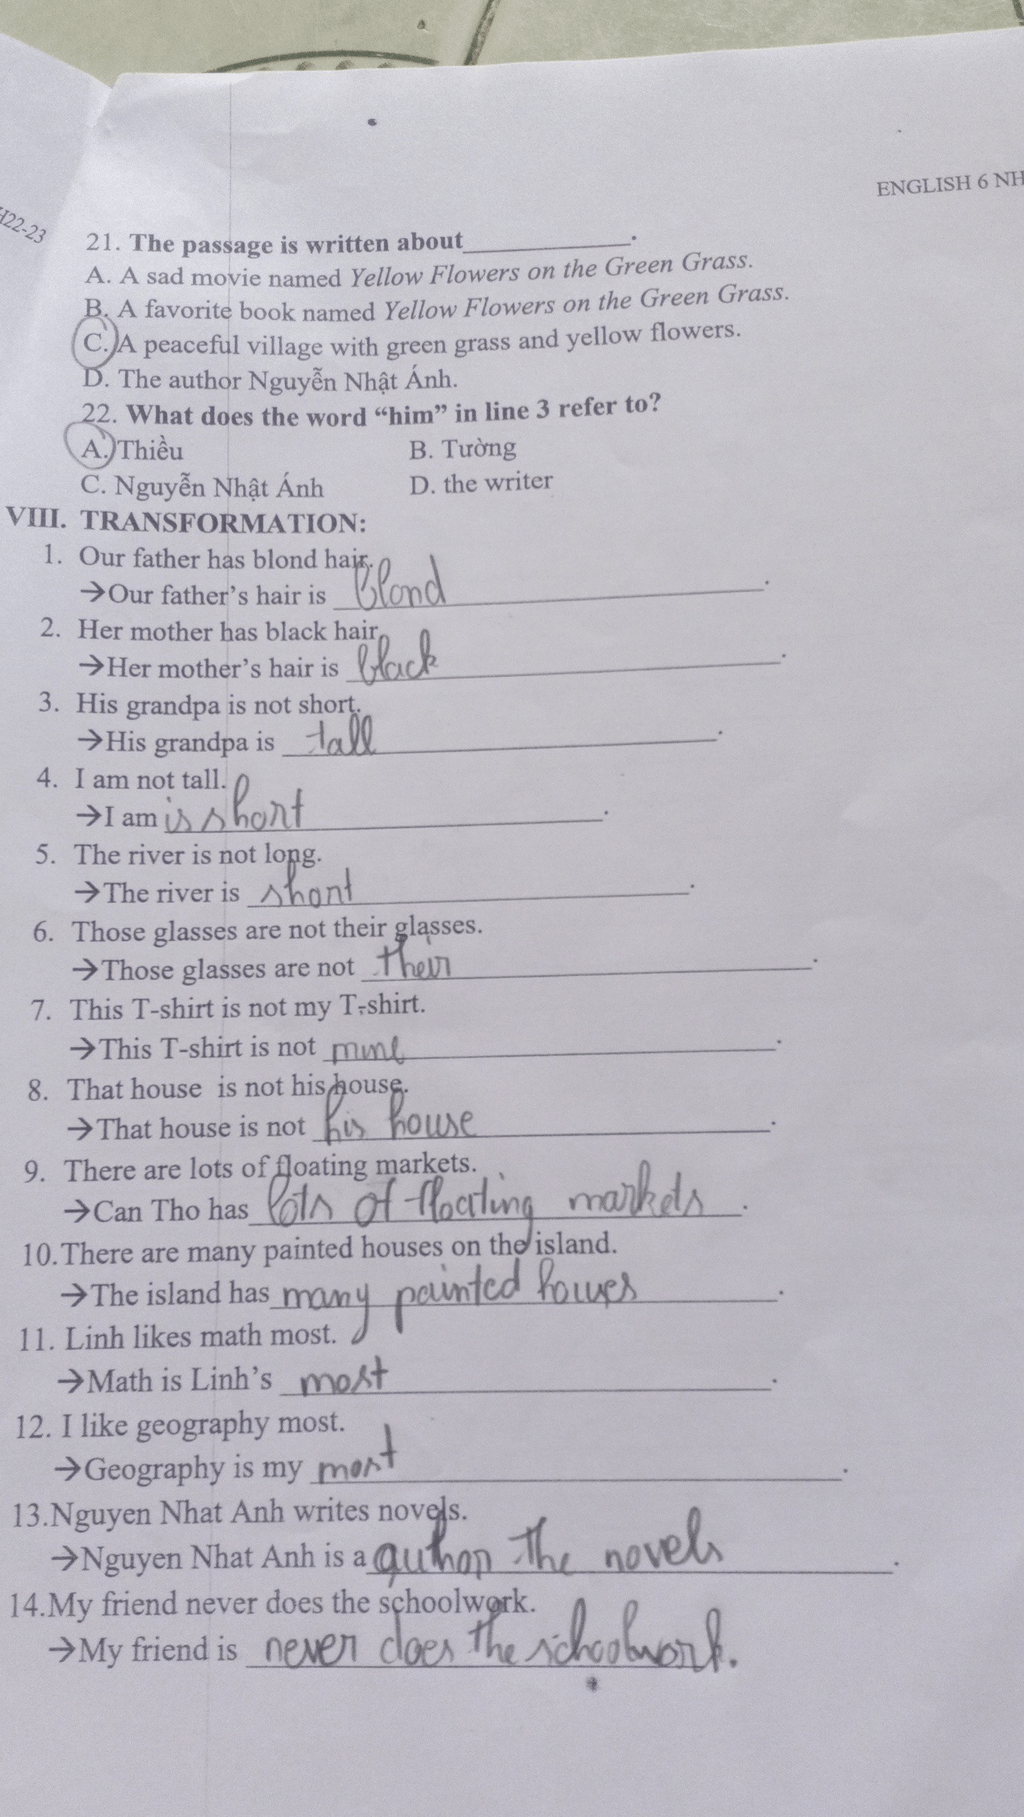 H22-23
ENGLISH 6 NH
21. The passage is written about____________.
A. A sad movie named Yellow Flowers on the Green Grass.
B. A favorite book named Yellow Flowers on the Green Grass.
C. A peaceful village with green grass and yellow flowers.
D. The author Nguyễn Nhật Ánh.
22. What does the word “him” in line 3 refer to?
A. Thiều B. Tường
C. Nguyễn Nhật Ánh D. the writer
VIII. TRANSFORMATION:
1. Our father has blond hair.
→Our father’s hair is blond.
2. Her mother has black hair.
→Her mother’s hair is black.
3. His grandpa is not short.
→His grandpa is tall.
4. I am not tall.
→I am is short.
5. The river is not long.
→The river is short.
6. Those glasses are not their glasses.
→Those glasses are not their.
7. This T-shirt is not my T-shirt.
→This T-shirt is not mine.
8. That house is not his house.
→That house is not his house.
9. There are lots of floating markets.
→Can Tho has lots of floating markets.
10. There are many painted houses on the island.
→The island has many painted houses.
11. Linh likes math most.
→Math is Linh’s most.
12. I like geography most.
→Geography is my most.
13. Nguyen Nhat Anh writes novels.
→Nguyen Nhat Anh is a author the novels.
14. My friend never does the schoolwork.
→My friend is never does the schoolwork.